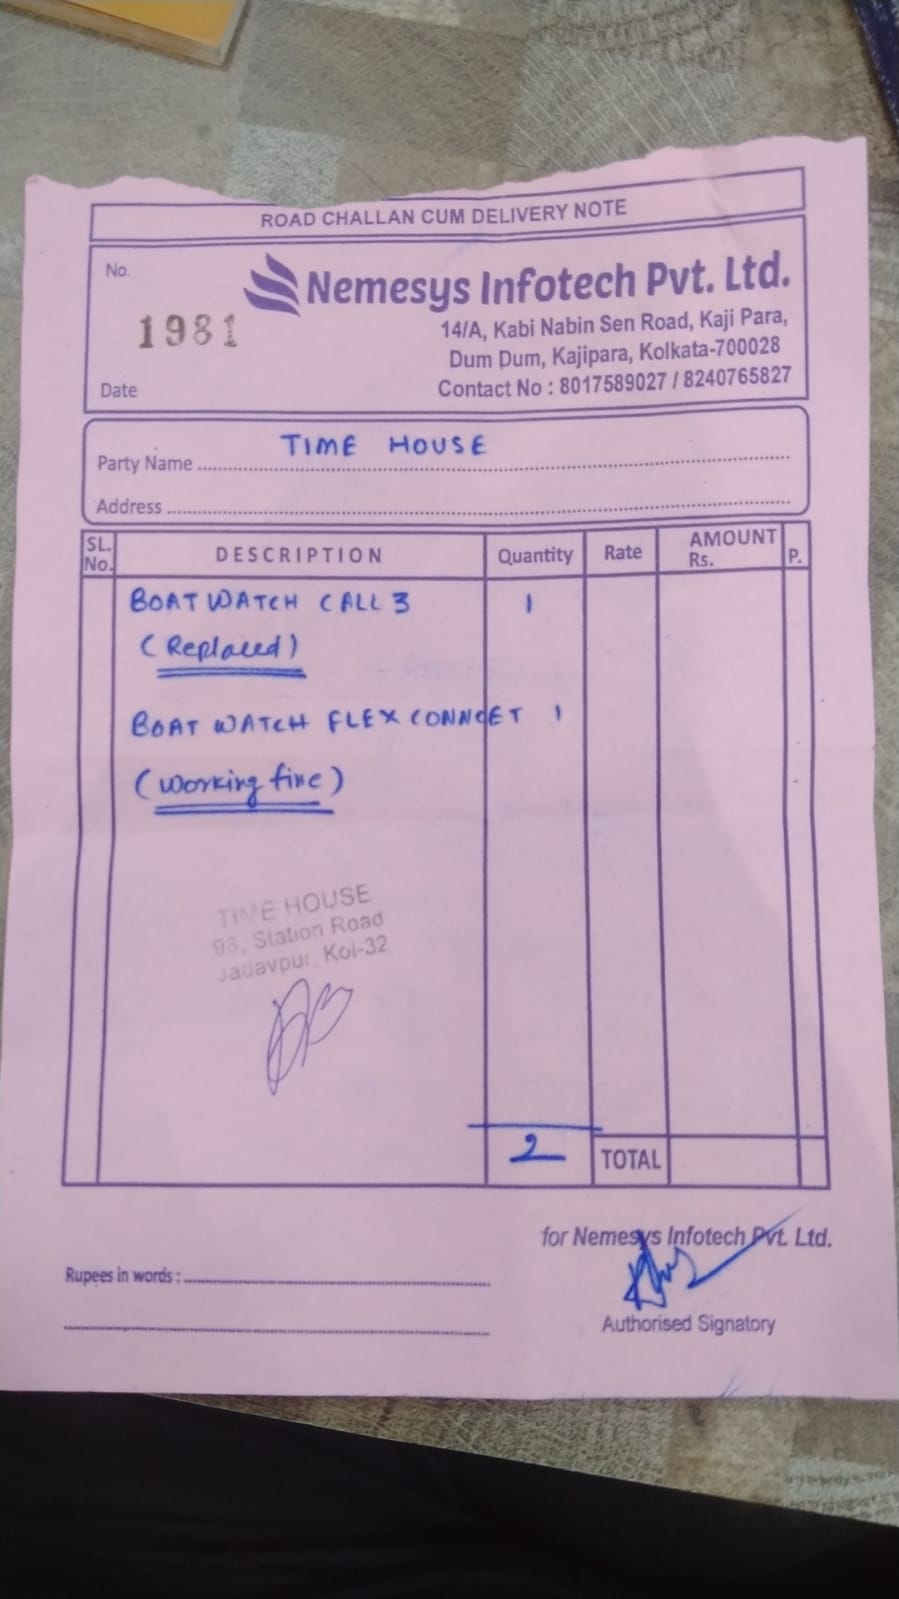 ROAD CHALLAN CUM DELIVERY NOTE
No.
1981
Nemesys Infotech Pvt. Ltd.
14/A, Kabi Nabin Sen Road, Kaji Para,
Dum Dum, Kajipara, Kolkata-700028
Contact No : 8017589027 / 8240765827
Date
Party Name TIME HOUSE
Address
SL. No. DESCRIPTION Quantity Rate AMOUNT Rs. P.
BOAT WATCH CALL 3 1
(Replaced)
BOAT WATCH FLEX CONNCET 1
(working fine)
TIME HOUSE
98, Station Road
Jadavpur, Kol-32
2 TOTAL
for Nemesys Infotech Pvt. Ltd.
Rupees in words :
Authorised Signatory